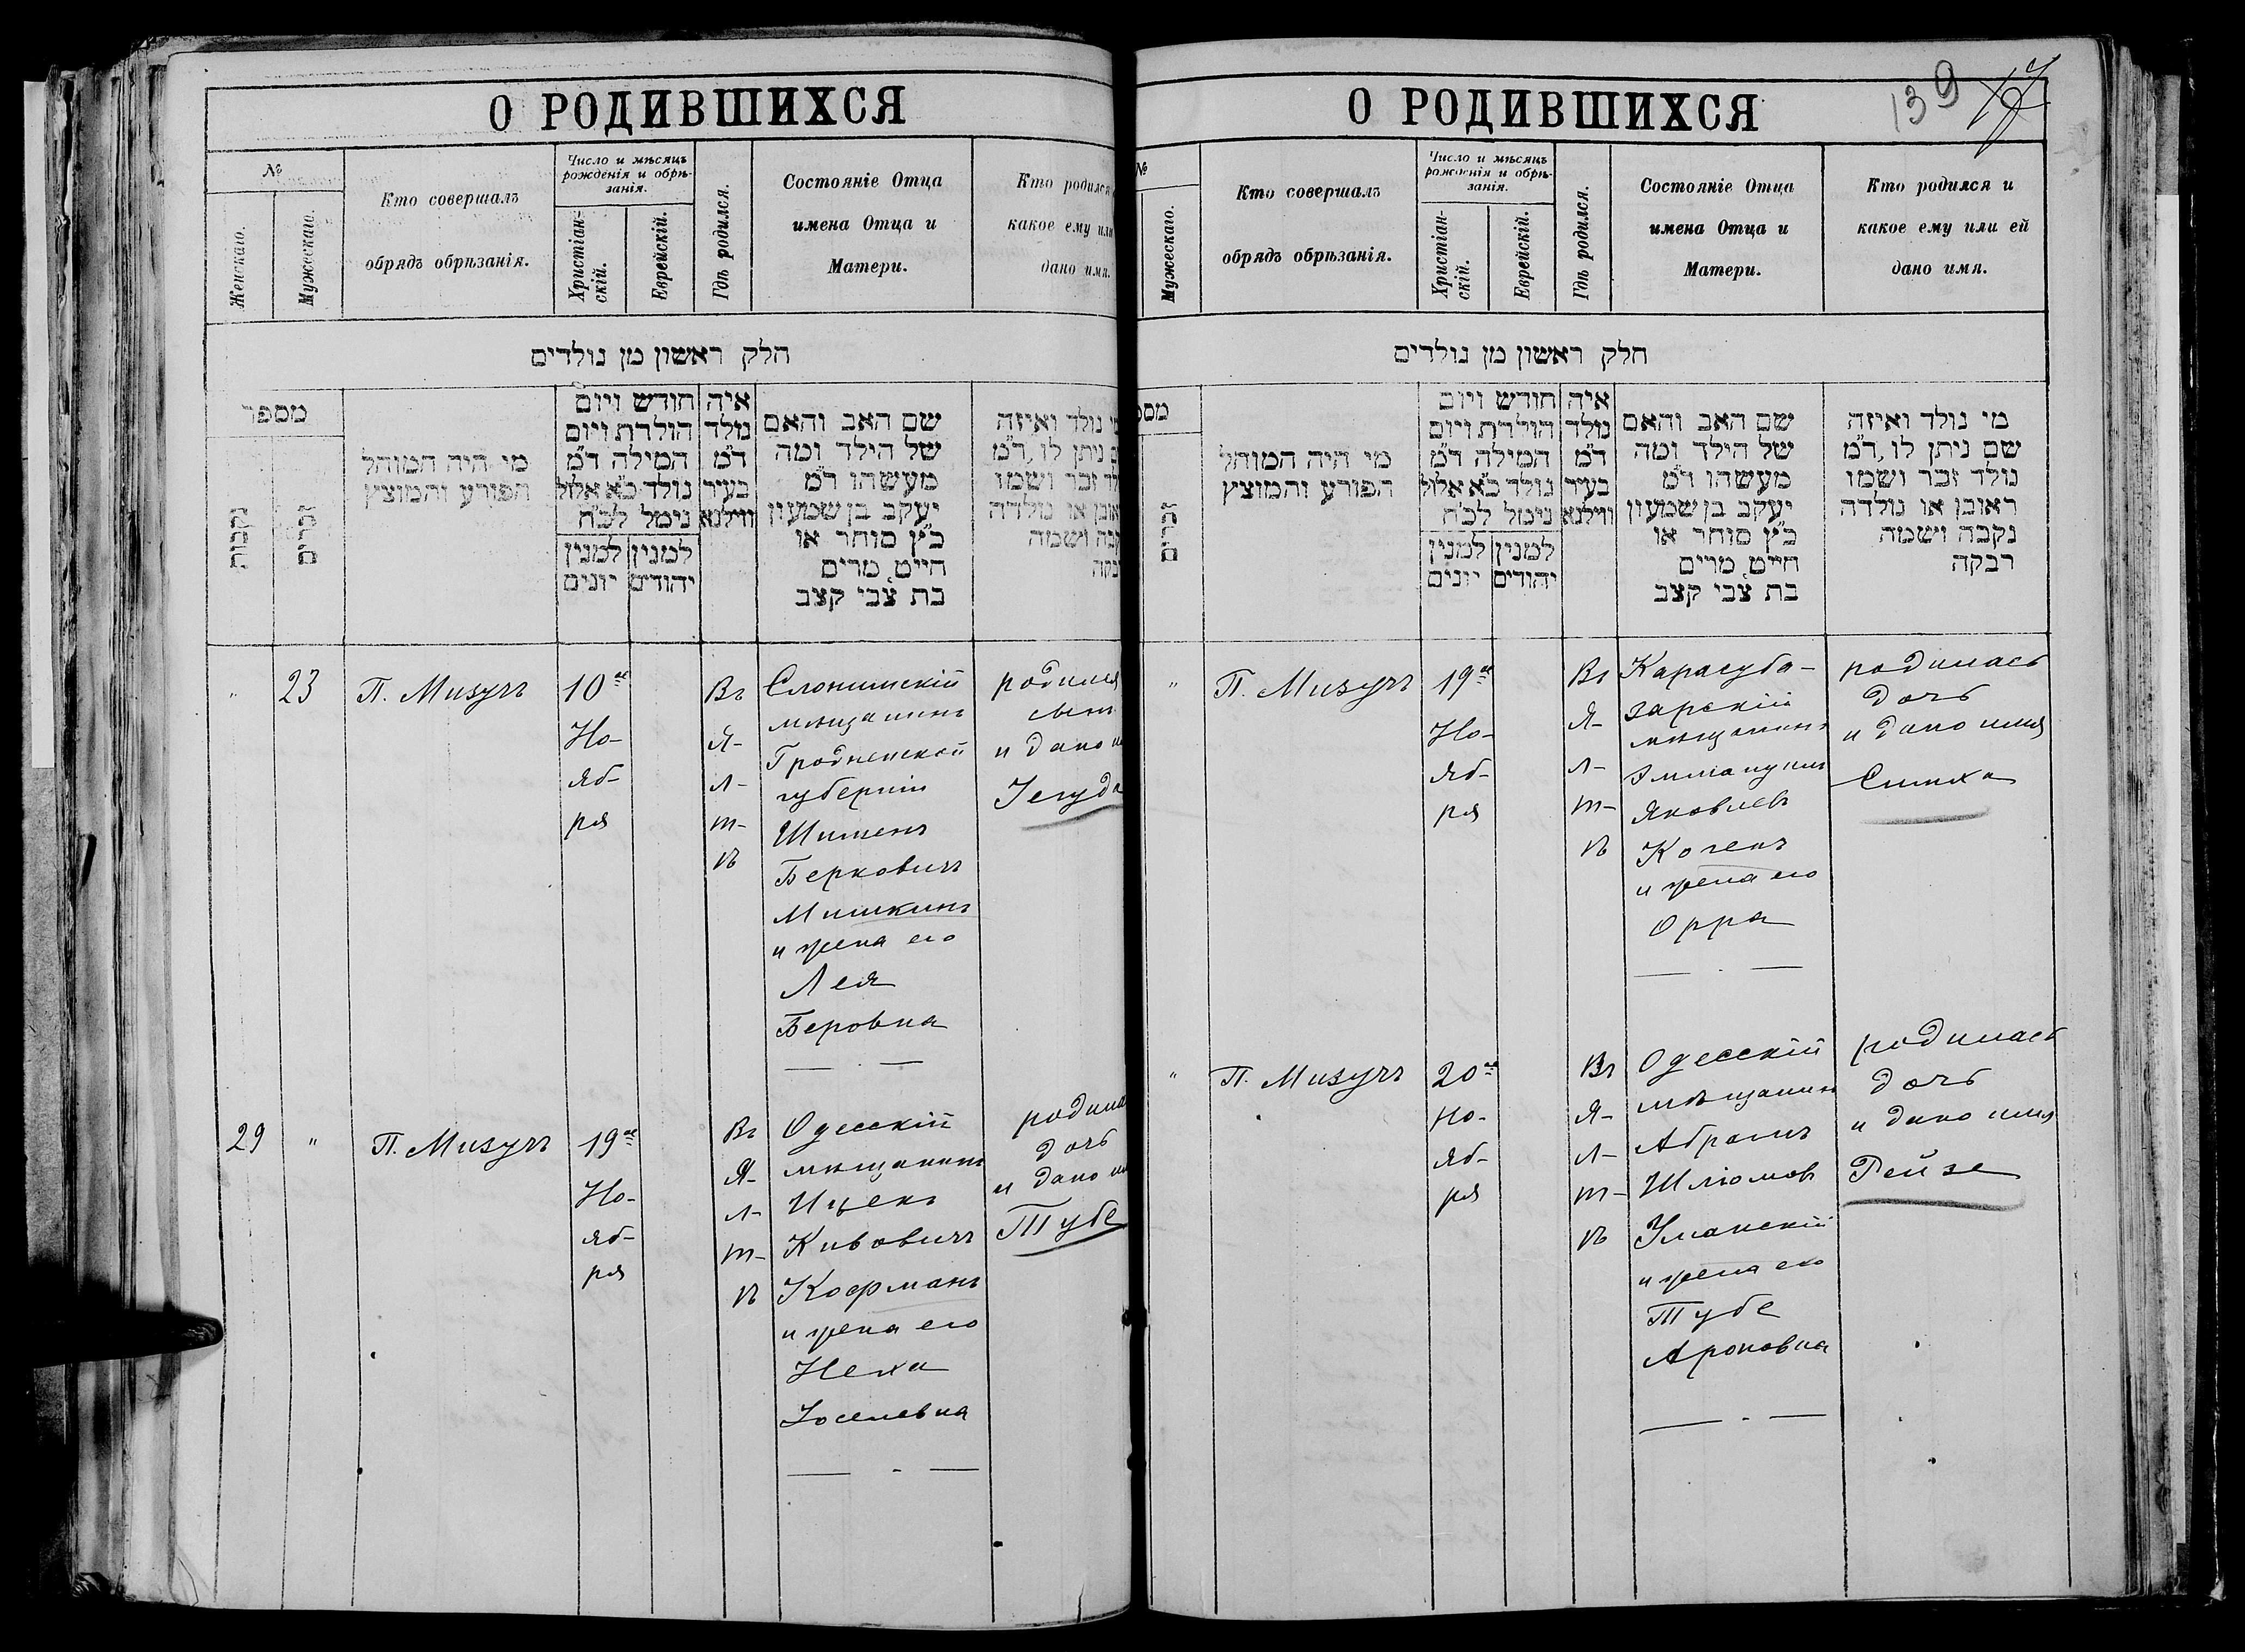 О РОДИВШИХСЯ
№
Женскаго.
Мужескаго.
Кто совершалъ
обрядъ обрѣзанія.
Число и мѣсяцъ
рожденія и обрѣ-
занія.
Христіан-
скій.
Еврейскій.
Гдѣ родился.
Состояніе Отца
имена Отца и
Матери.
Кто родился
какое ему или
дано имя.
חלק ראשון מן נולדים
מספר
נקבות
זכרים
מי היה המוהל
הפורע והמוצץ
חודש ויום
הולדת ויום
המילה ד״מ
נולד כ״א אלול
נימל לכ״ח
למנין
יהודים
למנין
יונים
איה
נולד
ד״מ
בעיר
ווילנא
שם האב והאם
של הילד ומה
מעשהו ד״מ
יעקב בן שמעון
כ״ץ סוחר או
חייט, מרים
בת צבי קצב
מי נולד ואיזה
שם ניתן לו, ד״מ
נולד זכר ושמו
ראובן או נולדה
נקבה ושמה
רבקה
" 23
П. Мизучъ
10го
Но-
яб-
ря
Въ
Я-
л-
т-
ѣ
Слонимскій
мѣщанинъ
Гродненской
губерніи
Шимень
Берковичъ
Мишкинъ
и жена его
Лея
Беровна
родился
сынъ
и дано и
Іегуда
29 "
П. Мизучъ
19го
Но-
яб-
ря
Въ
Я-
л-
т-
ѣ
Одесскій
мѣщанинъ
Ицекъ
Кивовичъ
Кофманъ
и жена его
Неха
Іоселевна
родила
дочь
и дано и
Тубе
139
О РОДИВШИХСЯ
№
Мужескаго.
Кто совершалъ
обрядъ обрѣзанія.
Число и мѣсяцъ
рожденія и обрѣ-
занія.
Христіан-
скій.
Еврейскій.
Гдѣ родился.
Состояніе Отца
имена Отца и
Матери.
Кто родился и
какое ему или ей
дано имя.
חלק ראשון מן נולדים
מספ
זכרים
מי היה המוהל
הפורע והמוצץ
חודש ויום
הולדת ויום
המילה ד״מ
נולד כ״א אלול
נימל לכ״ח
למנין
יהודים
למנין
יונים
איה
נולד
ד״מ
בעיר
ווילנא
שם האב והאם
של הילד ומה
מעשהו ד״מ
יעקב בן שמעון
כ״ץ סוחר או
חייט, מרים
בת צבי קצב
מי נולד ואיזה
שם ניתן לו, ד״מ
נולד זכר ושמו
ראובן או נולדה
נקבה ושמה
רבקה
"
П. Мизучъ
19го
Но-
яб-
ря
Въ
Я-
л-
т-
ѣ
Карасуба-
зарскій
мѣщанинъ
Эммануилъ
Яковлевъ
Когенъ
и жена его
Орра
родилась
дочь
и дано имя
Симха
"
П. Мизучъ
20го
Но-
яб-
ря
Въ
Я-
л-
т-
ѣ
Одесскій
мѣщанинъ
Абрамъ
Шліомовъ
Уманскій
и жена его
Тубе
Ароновна
родилась
дочь
и дано имя
Рейзе